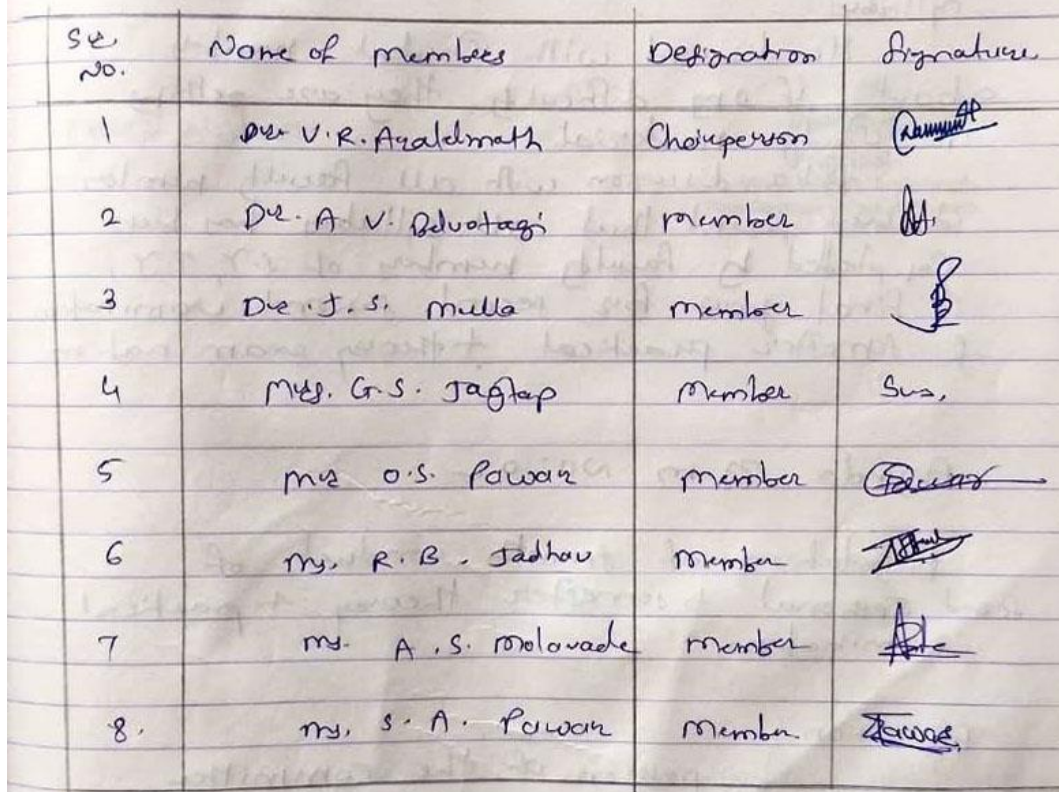 Sr. No. Name of members Designation Signature
1 Dr. V. R. Chairperson
2 Dr. A. V. member
3 Dr. J. S. Mulla member
4 Mrs. G. S. Jagtap Member
5 Mr O.S. Pawar member
6 Ms. R. B. Jadhav Member
7 Ms. A. S. Molavade member
8. Ms. S. A. Pawar Member